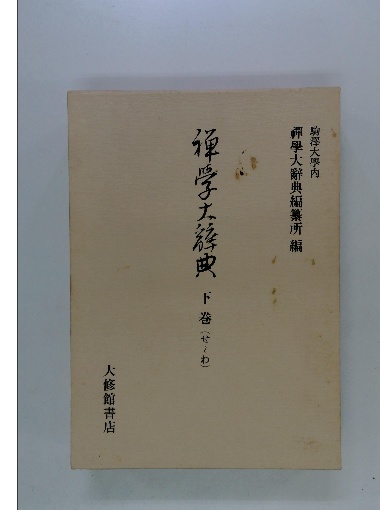 駒澤大學內
禪學大辭典編纂所 編
禅学大辞典
下巻(せ〜わ)
大修館書店